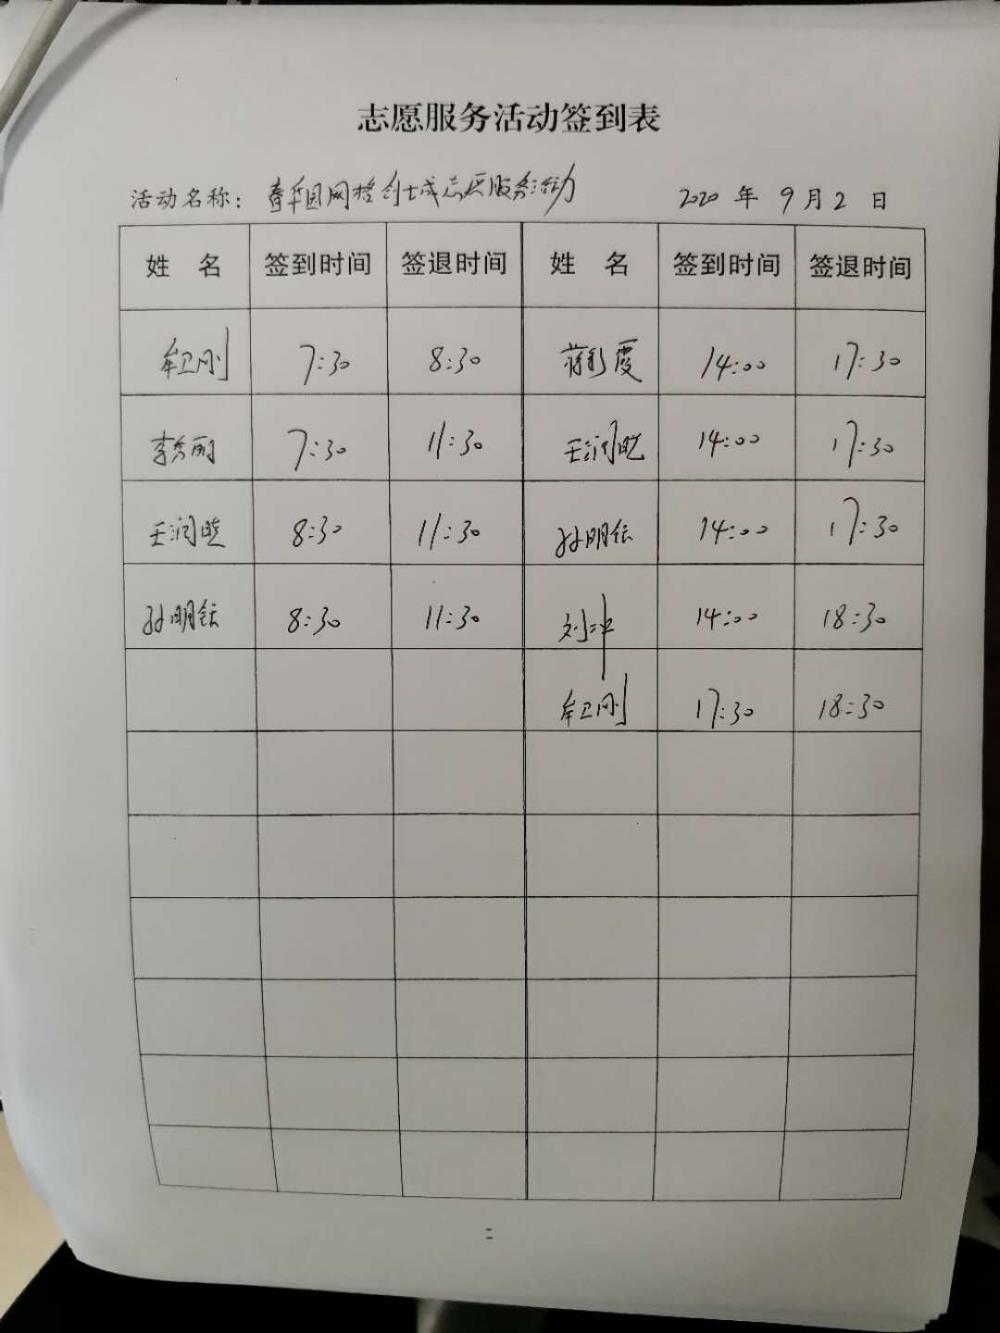 志愿服务活动签到表
活动名称：华园网格创城志愿服务活动 2020 年 9 月 2 日
姓 名 签到时间 签退时间 姓 名 签到时间 签退时间
牟卫刚 7:30 8:30 蒋彩霞 14:00 17:30
李秀丽 7:30 11:30 王润晓 14:00 17:30
王润晓 8:30 11:30 孙明铉 14:00 17:30
孙明铉 8:30 11:30 刘冲 14:00 18:30
牟卫刚 17:30 18:30